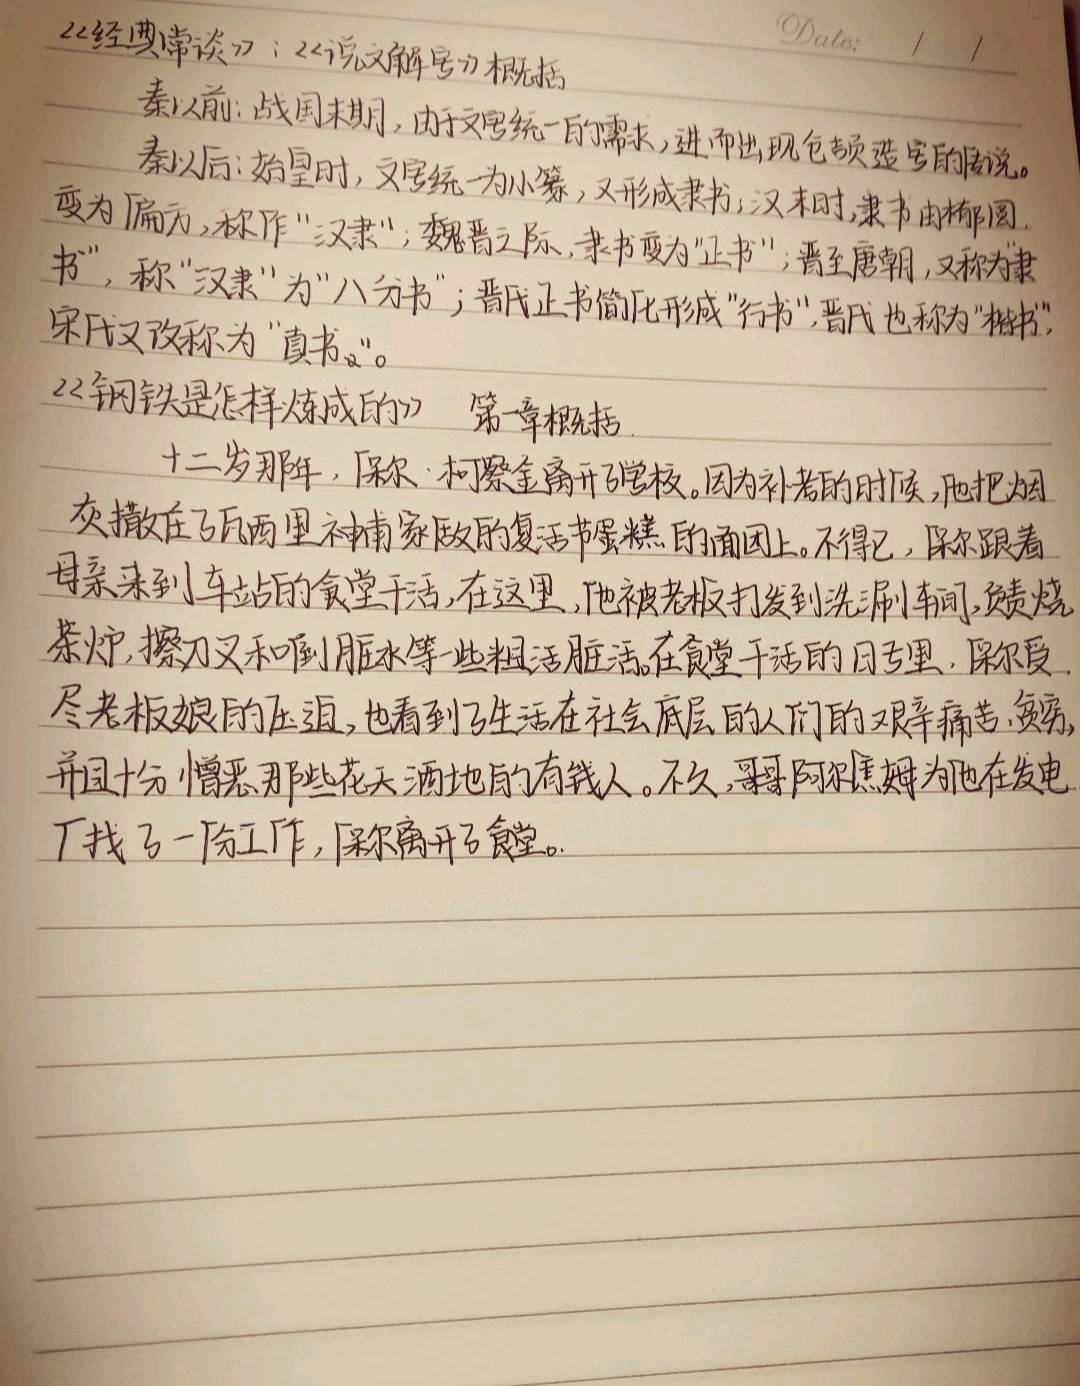 Date: / /
《经典常谈》：《说文解字》概括
秦以前：战国末期，由于文字统一的需求，进而出现仓颉造字的传说。
秦以后：始皇时，文字统一为小篆，又形成隶书；汉末时，隶书由椭圆
变为扁方，称作"汉隶"；魏晋之际，隶书变为"正书"；晋至唐朝，又称为"隶
书"，称"汉隶"为"八分书"；晋代正书简化形成"行书"，晋代也称为"楷书"，
宋代又改称为"真书"。
《钢铁是怎样炼成的》 第一章概括
十二岁那年，保尔·柯察金离开了学校。因为补考的时候，他把烟
灰撒在了瓦西里神甫家做的复活节蛋糕的面团上。不得已，保尔跟着
母亲来到车站的食堂干活，在这里，他被老板打发到洗涮车间，负责烧
茶炉，擦刀叉和倒脏水等一些粗活脏活。在食堂干活的日子里，保尔受
尽老板娘的压迫，也看到了生活在社会底层的人们的艰辛痛苦、贫穷，
并且十分憎恶那些花天酒地的有钱人。不久，哥哥阿尔焦姆为他在发电
厂找了一份工作，保尔离开了食堂。